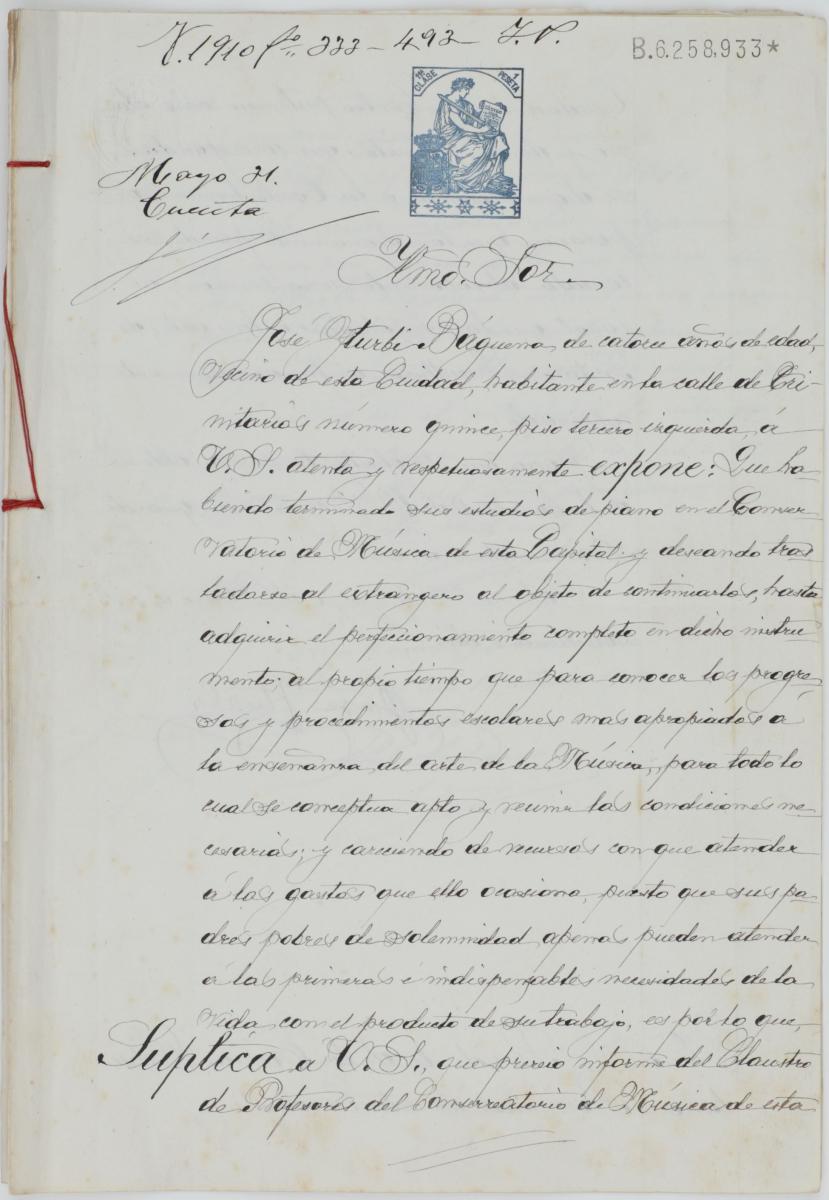 V. 1910 fº 333 - 493 - J. P.
B.6.258,933*
11ª CLASE 1 PESETA
Mayo 21.
Cuenta
Ylmo. Sor.
José Yturbi Báguena, de catorce años de edad,
vecino de esta Ciudad, habitante en la calle de Tri-
nitarios número quince, piso tercero izquierda, á
V. S. atenta y respetuosamente expone: Que ha-
biendo terminado sus estudios de piano en el Conser
vatorio de Música de esta Capital y deseando tras
ladarse al extrangero al objeto de continuarlos, hasta
adquirir el perfeccionamiento completo en dicho instru
mento; al propio tiempo que para conocer los progre-
sos y procedimientos escolares mas apropiados á
la enseñanza del arte de la Música, para todo lo
cual se conceptua apto y reune las condiciones ne-
cesarias; y careciendo de recursos con que atender
á los gastos que ello ocasiona, puesto que sus pa-
dres pobres de solemnidad apenas pueden atender
á las primeras é indispensables necesidades de la
vida con el producto de su trabajo, es por lo que,
Suplica a V. S., que previo informe del Claustro
de Profesores del Conservatorio de Música de esta